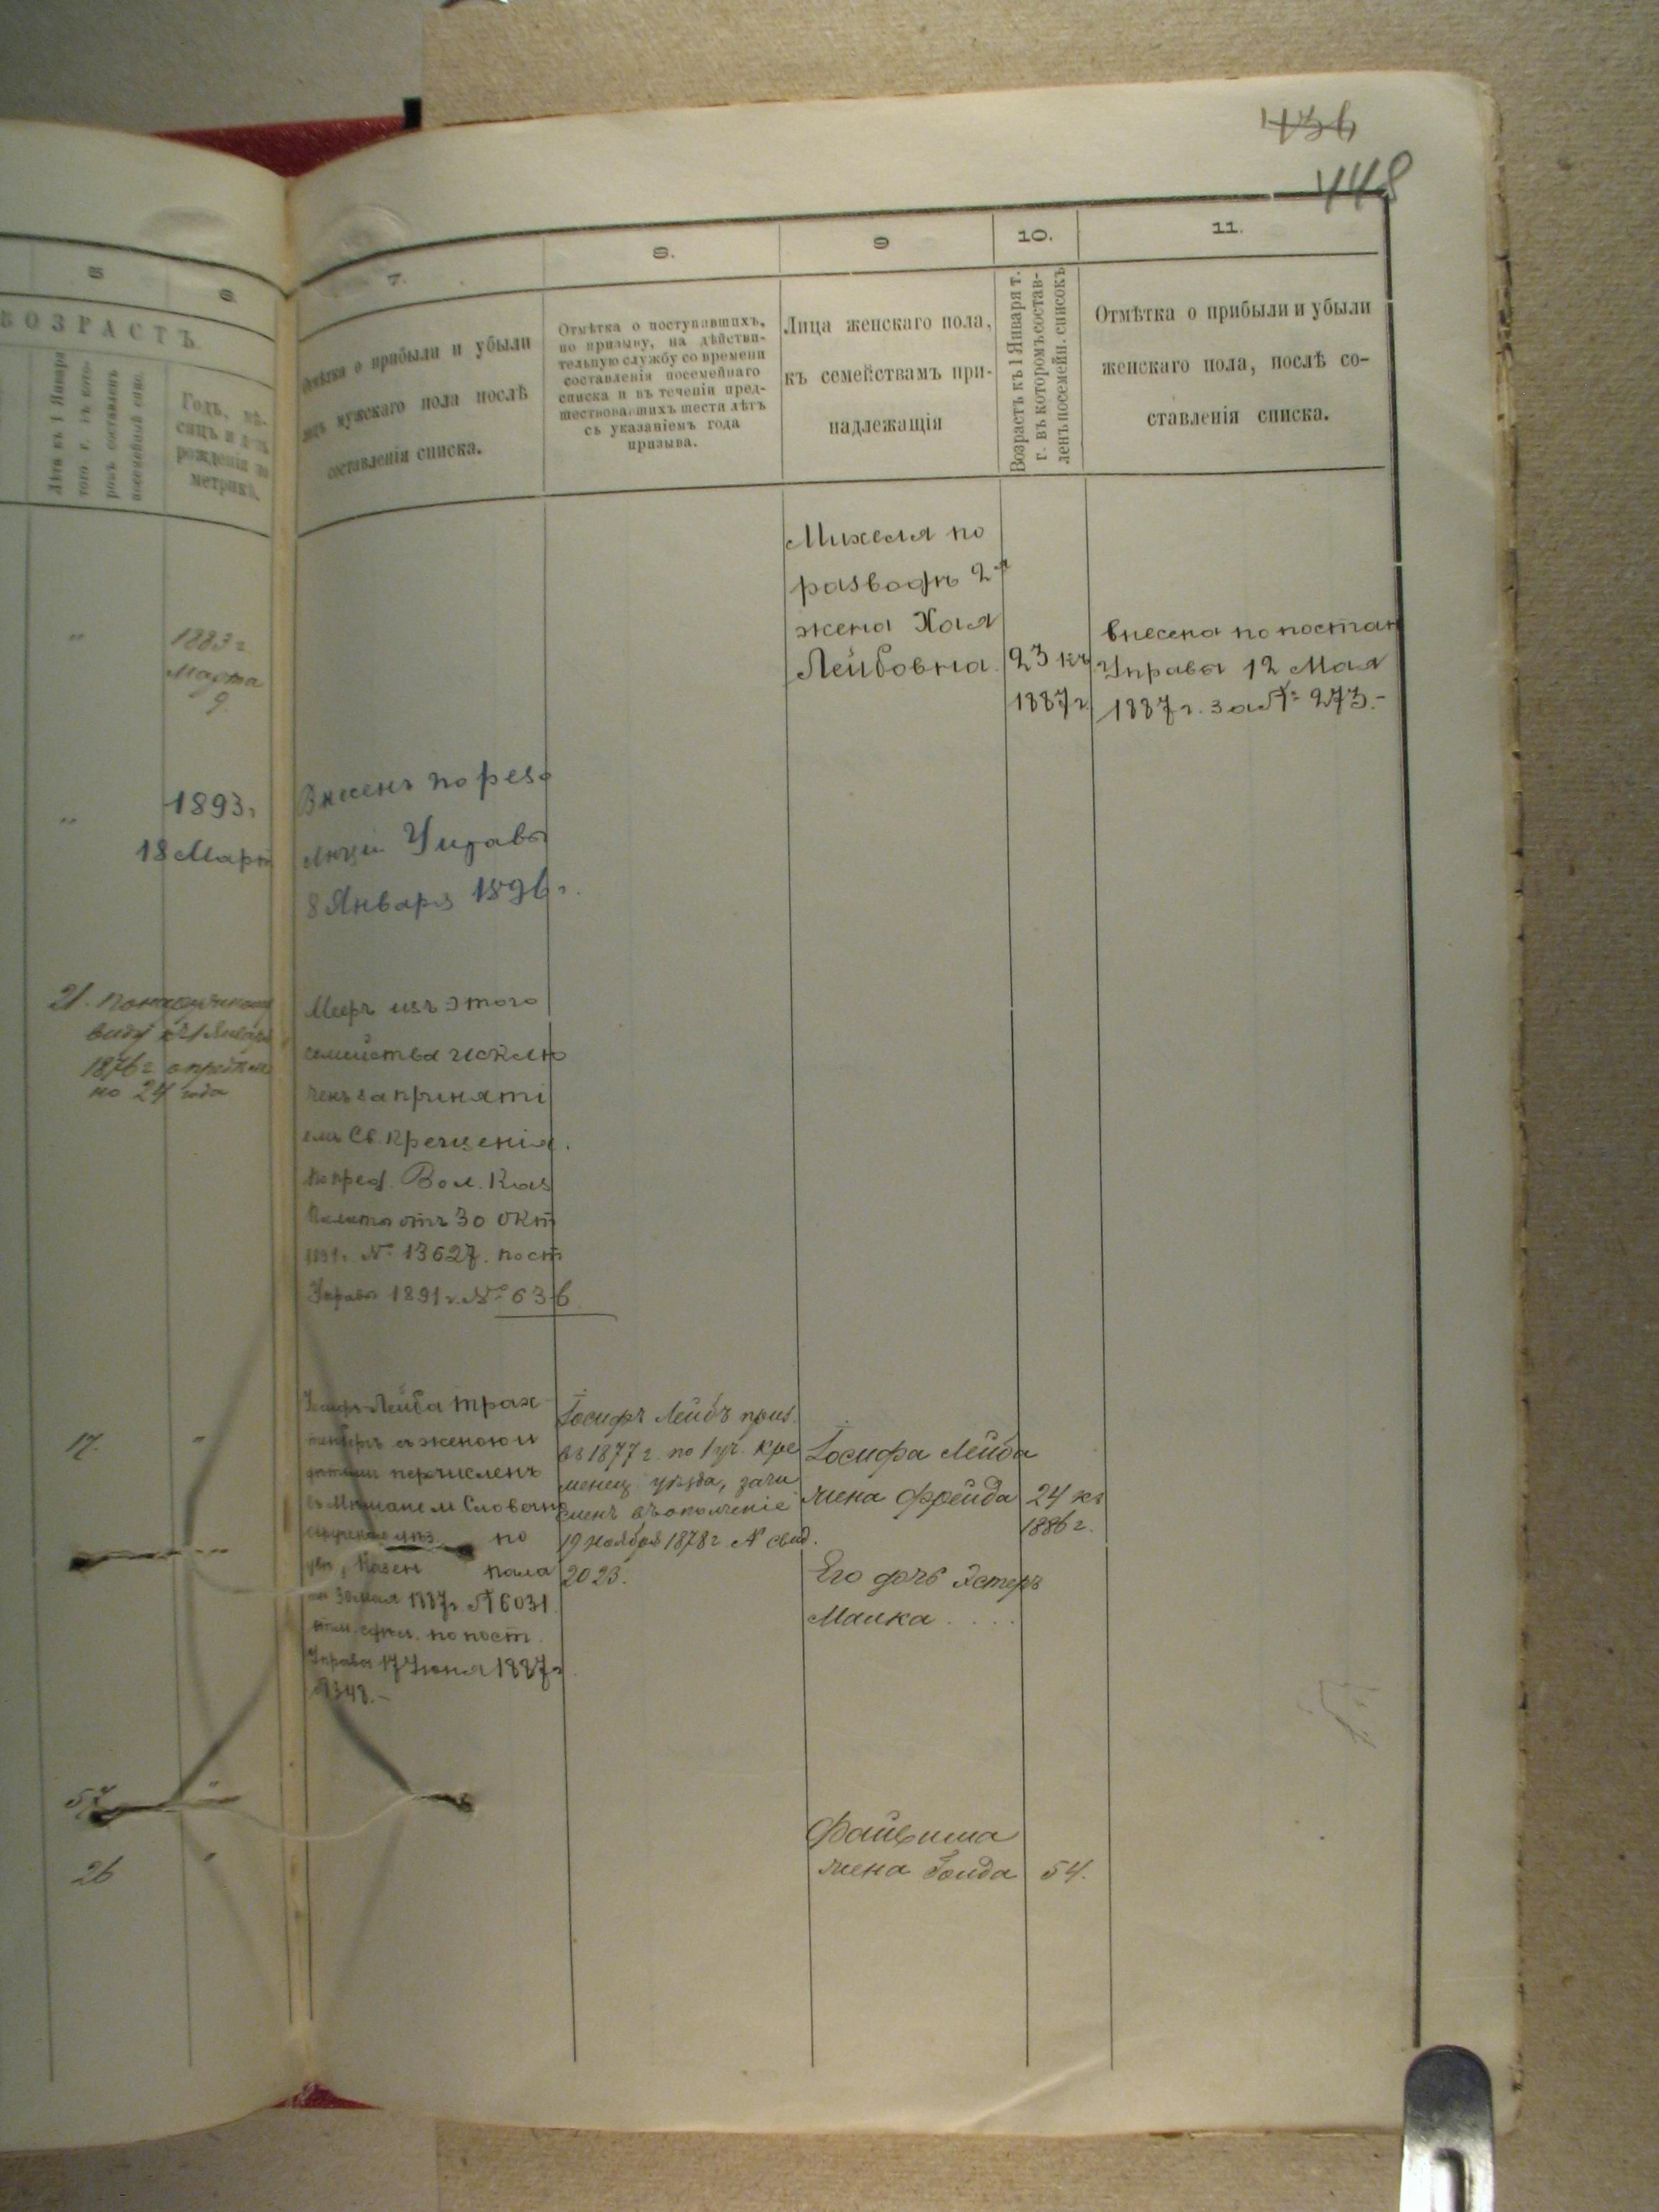 436
448
5
6
7.
8.
9
10.
11.
ВОЗРАСТЪ
Лѣта къ 1 Января
того г. въ кото-
ромъ составленъ
посемейный спис.
Годъ, мѣ-
сяцъ и день
рожденія по
метрикѣ.
Отмѣтка о прибыли и убыли
лицъ мужскаго пола послѣ
составленія списка.
Отмѣтка о поступавшихъ,
по призыву, на дѣйстви-
тельную службу со времени
составленія посемейнаго
списка и въ теченіи пред-
шествовавшихъ шести лѣтъ
съ указаніемъ года
призыва.
Лица женскаго пола,
къ семействамъ при-
надлежащія
Возрастъ къ 1 Января т.
г. въ которомъ состав-
ленъ посемейн. списокъ
Отмѣтка о прибыли и убыли
женскаго пола, послѣ со-
ставленія списка.
Михеля по
разводѣ 2я
жена Хая
Лейбовна
23 къ
1887 г.
внесена по постан
Управы 12 Мая
1887 г. за № 273.-
"
1883 г
Марта
9
"
1893 г
18 Март
Внесенъ по резо
люціи Управы
8 Января 1896 г.
21. по наружному
виду къ 1 Январ
1876 г. опредѣле
но 24 года
Мееръ изъ этого
семейства исклю
ченъ за приняті
емъ Св. Крещенія.
по пред. Вол. Каз
Палаты отъ 30 Окт
1891 г. № 13627. пост
Управы 1891 г. № 636
17.
"
Іосифъ Лейба Трах
тенберъ съ женою и
дѣтьми перечисленъ
въ Мѣщане м.
по
Казен пала
30 мая 1887 г. № 6031
по пост.
Управы 17 Іюня 1887 г
№ 348.-
Іосифъ Лейбъ приз.
въ 1877 г. по 1 уч. Кре
менец. уѣзда, зачи
сленъ въ ополченіе
19 ноября 1878 г № свид.
2023.
Іосифа Лейба
жена Фрейда
24 къ
1886 г.
Его дочь Эстеръ
Малка . . . .
57
"
26
"
Файвиша
жена Голда
54.